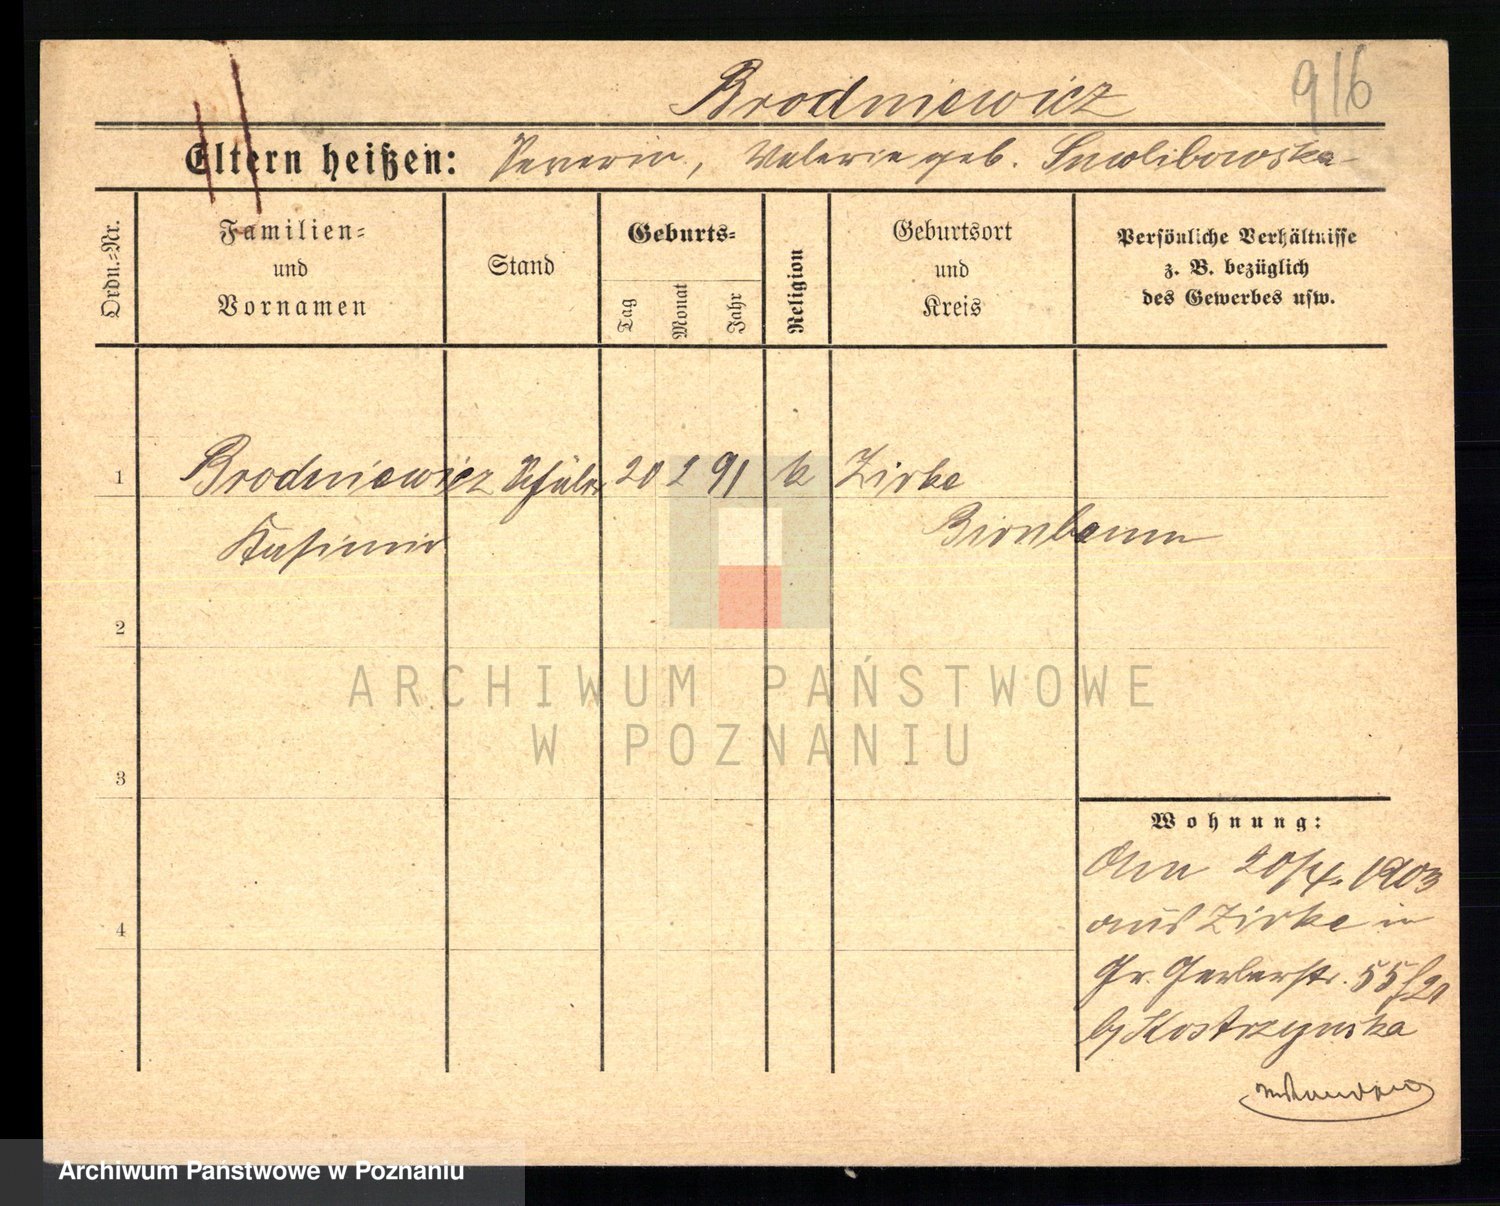 916
Brodniewicz
Eltern heißen: Severin, Valerie geb. Smolibowska
Ordn.-Nr.
Familien- und Vornamen
Stand
Geburts-
Tag
Monat
Jahr
Religion
Geburtsort und Kreis
Persönliche Verhältnisse z. B. bezüglich des Gewerbes usw.
1 Brodniewicz Schüler 20 2 91 k Zirke
Kasimir Birnbaum
2
3
4
Wohnung:
Am 20/4. 1903
aus Zirke in
Gr. Gerberstr. 55
b/ Kostrzynska
ARCHIWUM PAŃSTWOWE
W POZNANIU
Archiwum Państwowe w Poznaniu